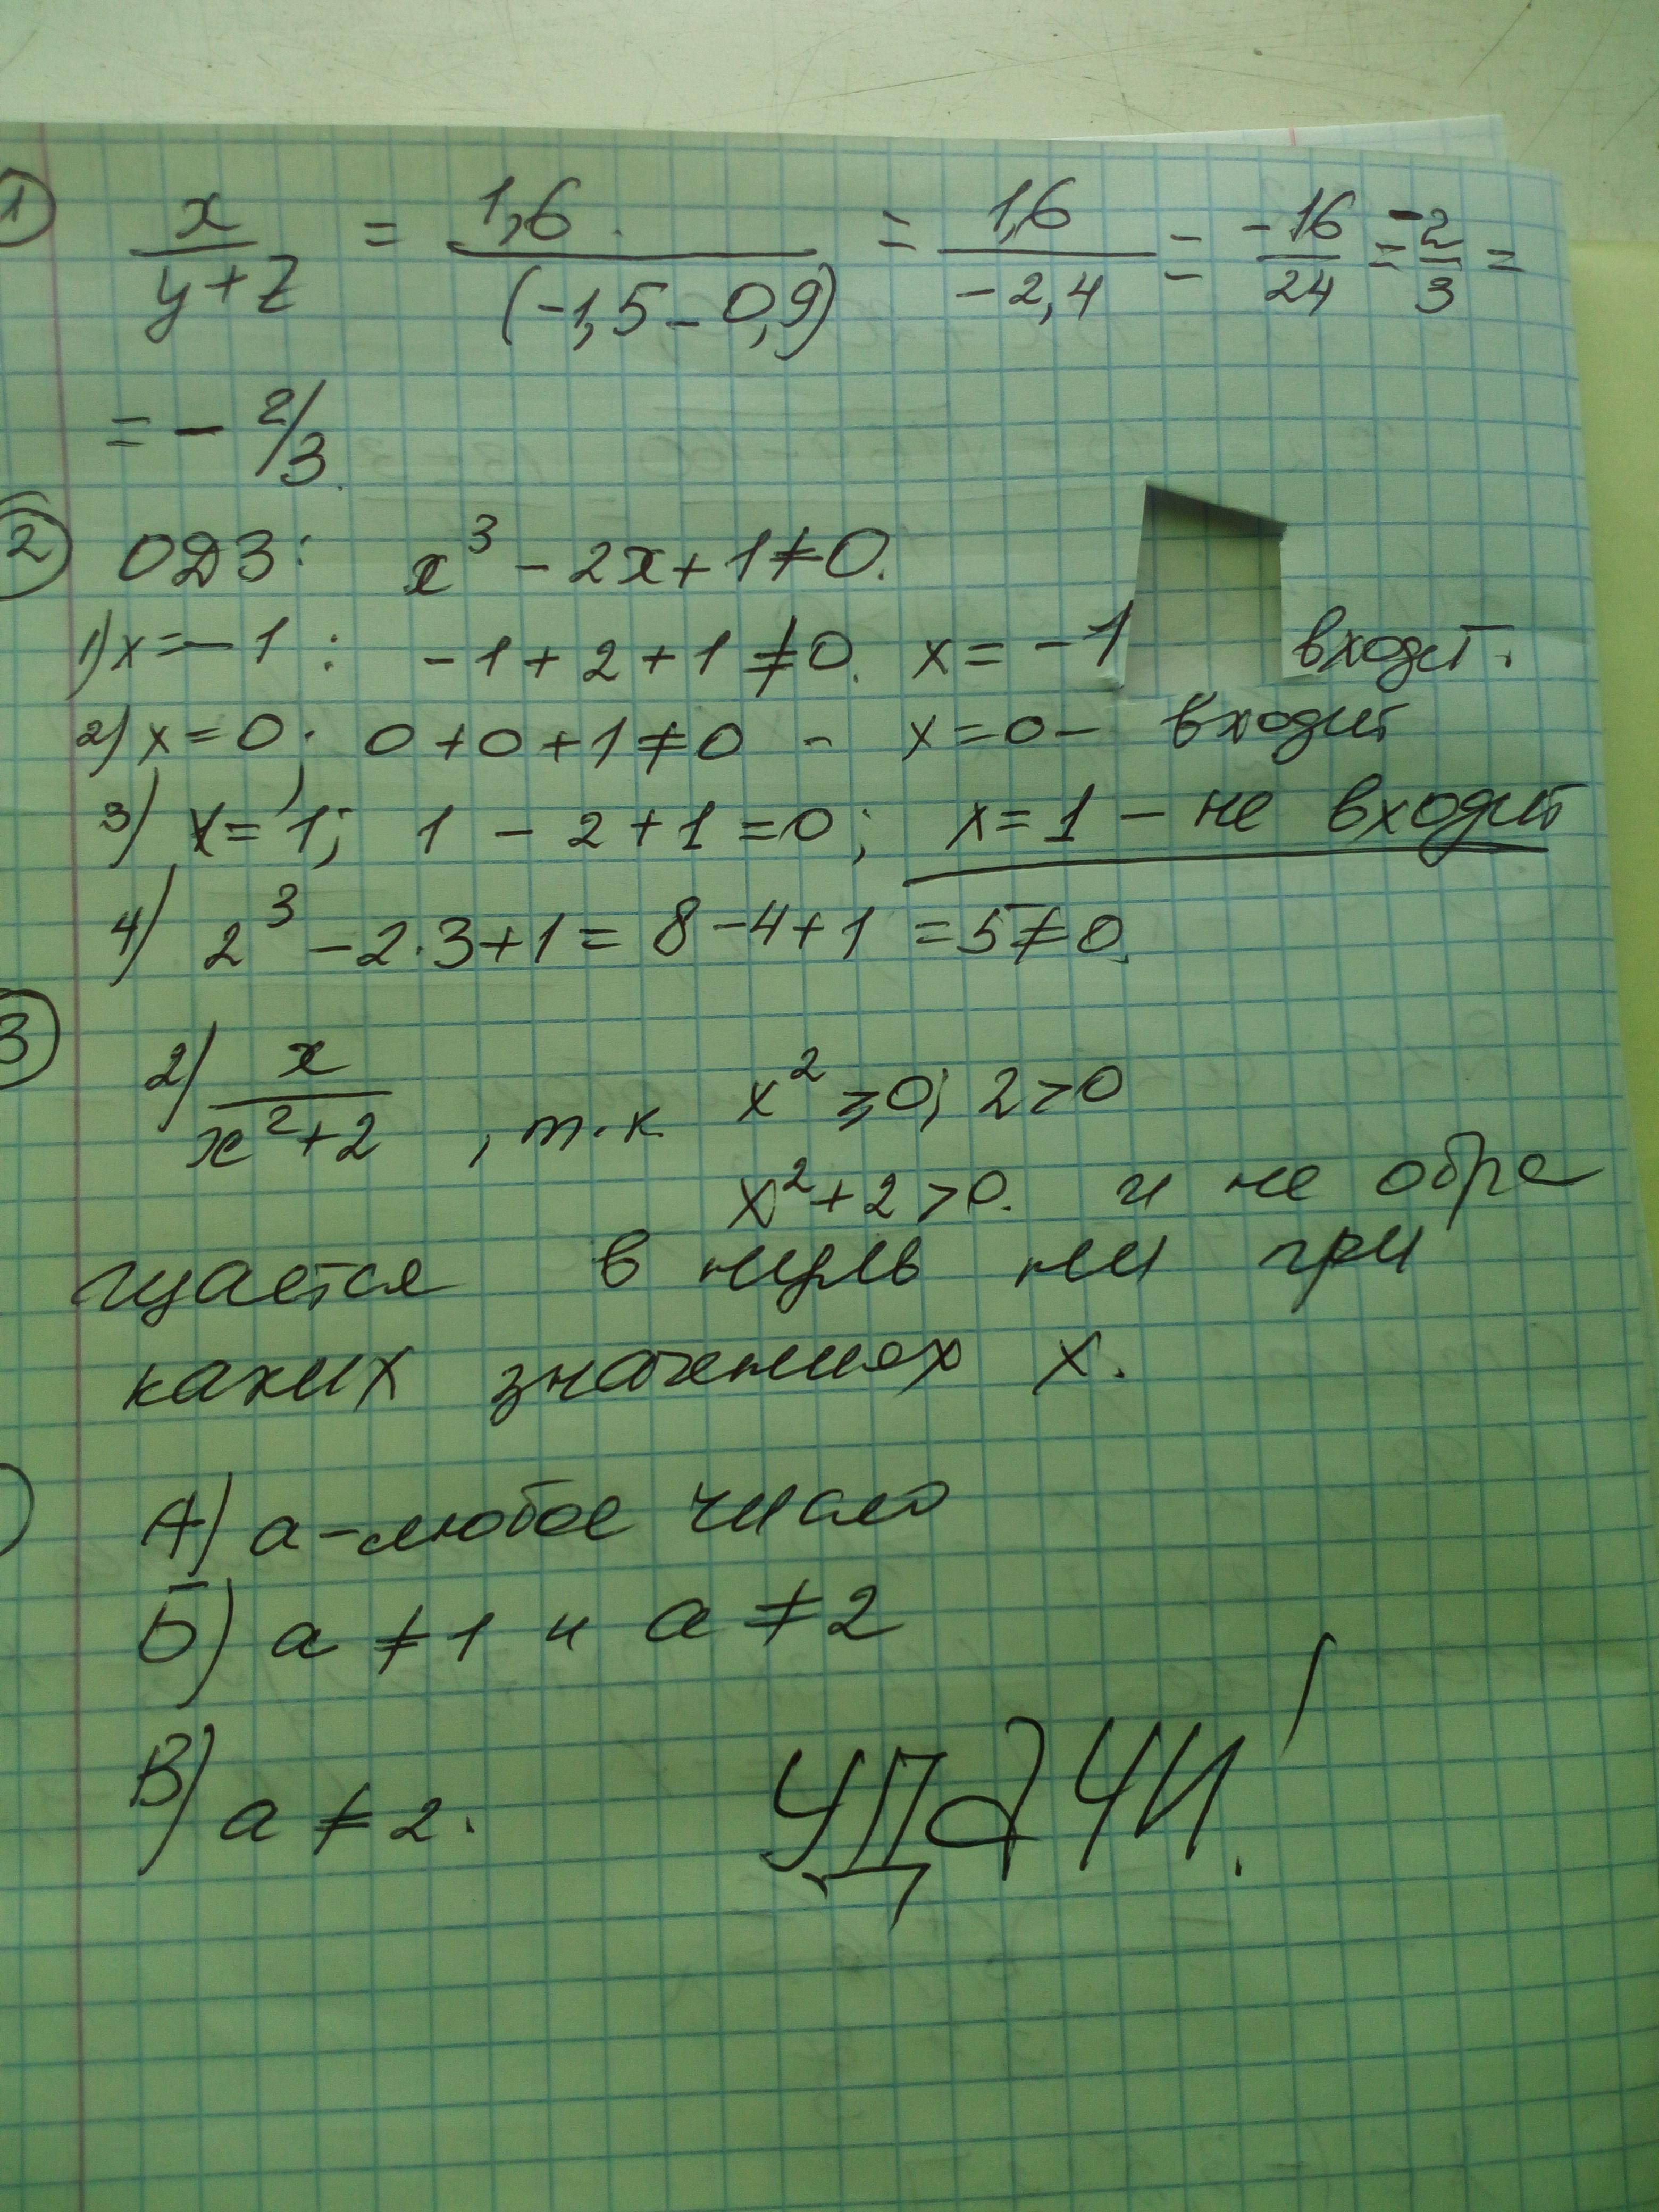 1) x/(y+z) = 1,6/(-1,5-0,9) = 1,6/-2,4 = -16/24 = -2/3 =
= - 2/3.
2) ОДЗ: x³ - 2x + 1 ≠ 0.
1) x = -1 : -1 + 2 + 1 ≠ 0. x = -1 входит.
2) x = 0; 0 + 0 + 1 ≠ 0 - x = 0 - входит
3) x = 1; 1 - 2 + 1 = 0; x = 1 - не входит
4) 2³ - 2·3 + 1 = 8 - 4 + 1 = 5 ≠ 0.
3) 2) x/(x²+2), т.к x² ≥ 0; 2 > 0
x² + 2 > 0. и не обра
щается в нуль ни при
каких значениях x.
А) a - любое число
Б) a ≠ 1 и a ≠ 2
В) a ≠ 2.
УДАЧИ!